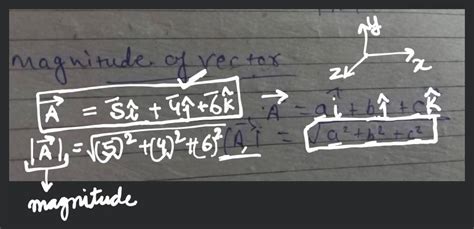 magnitude of vector
y
x
z
A⃗ = 5î + 4ĵ + 6k̂
A⃗ = aî + bĵ + ck̂
|A⃗| = √(5)² + (4)² + (6)²
|A⃗| = √a² + b² + c²
magnitude